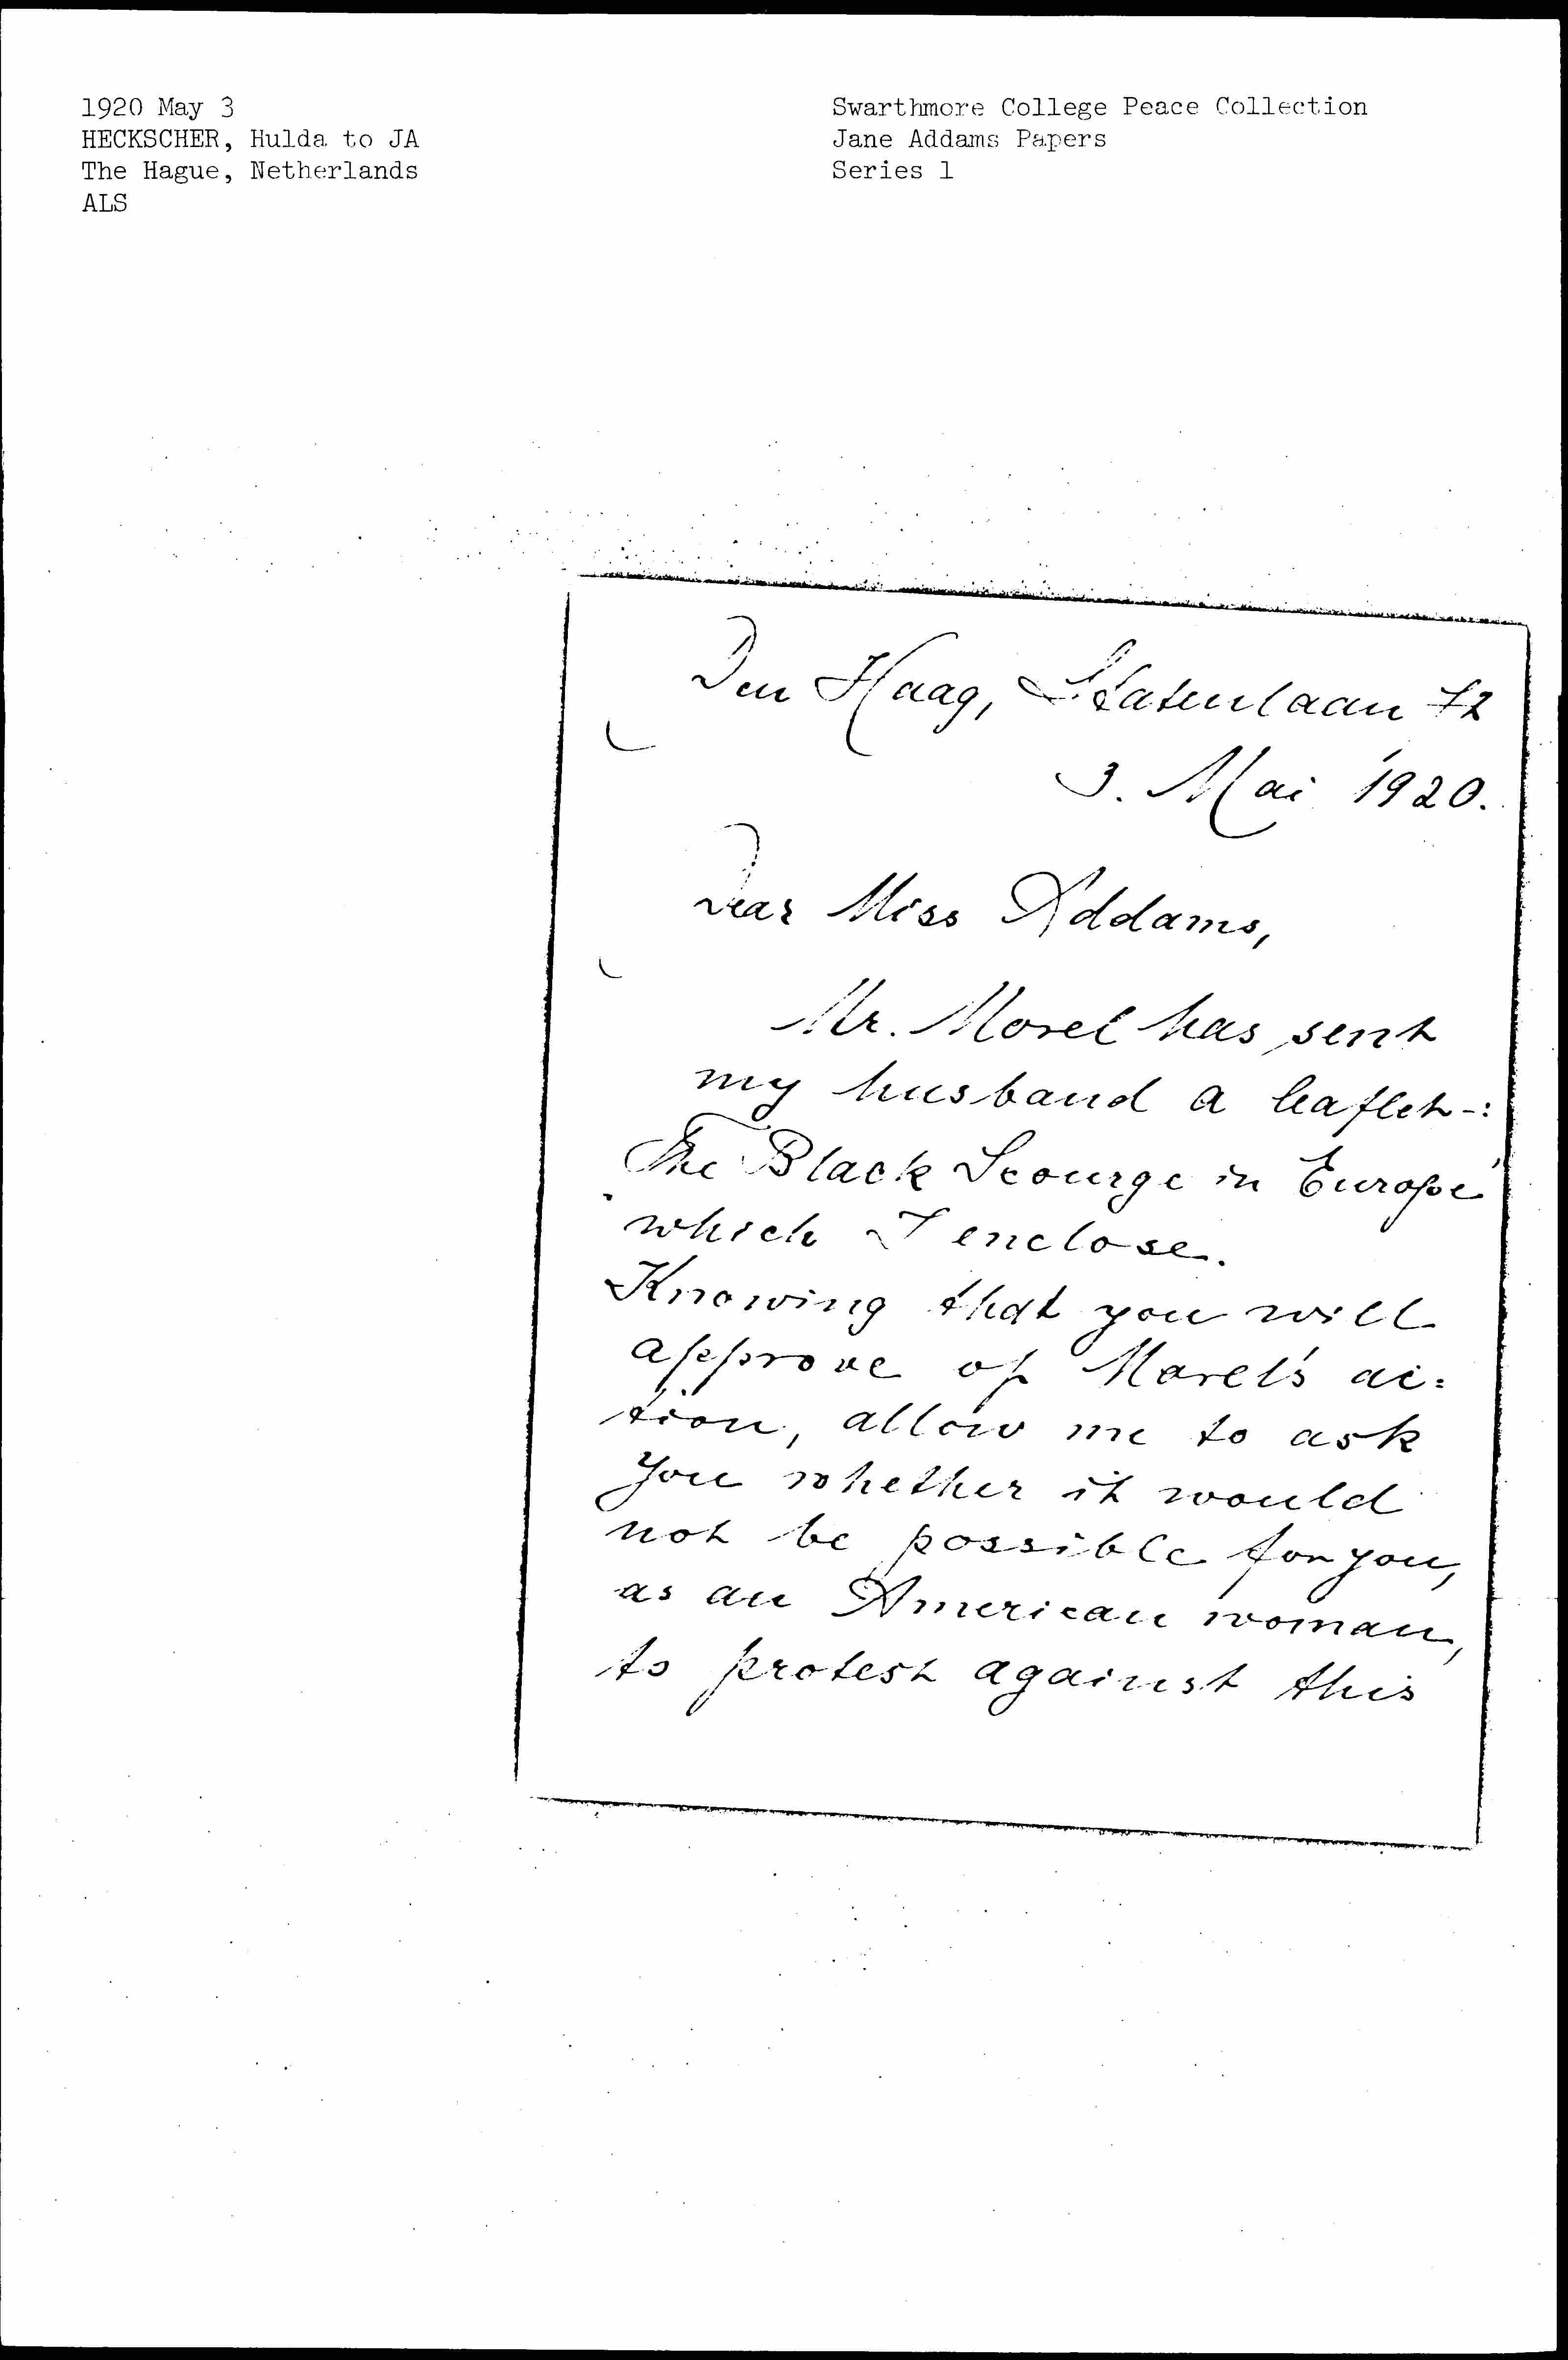 1920 May 3
HECKSCHER, Hulda to JA
The Hague, Netherlands
ALS
Swarthmore College Peace Collection
Jane Addams Papers
Series 1
Den Haag, Statenlaan 72
3. Mai 1920.
Dear Miss Addams,
Mr. Morel has sent
my husband a leaflet -:
The Black Scourge in Europe"
which I enclose.
Knowing that you will
approve of Morel's ac=
tion, allow me to ask
you whether it would
not be possible for you,
as an American woman,
to protest against this